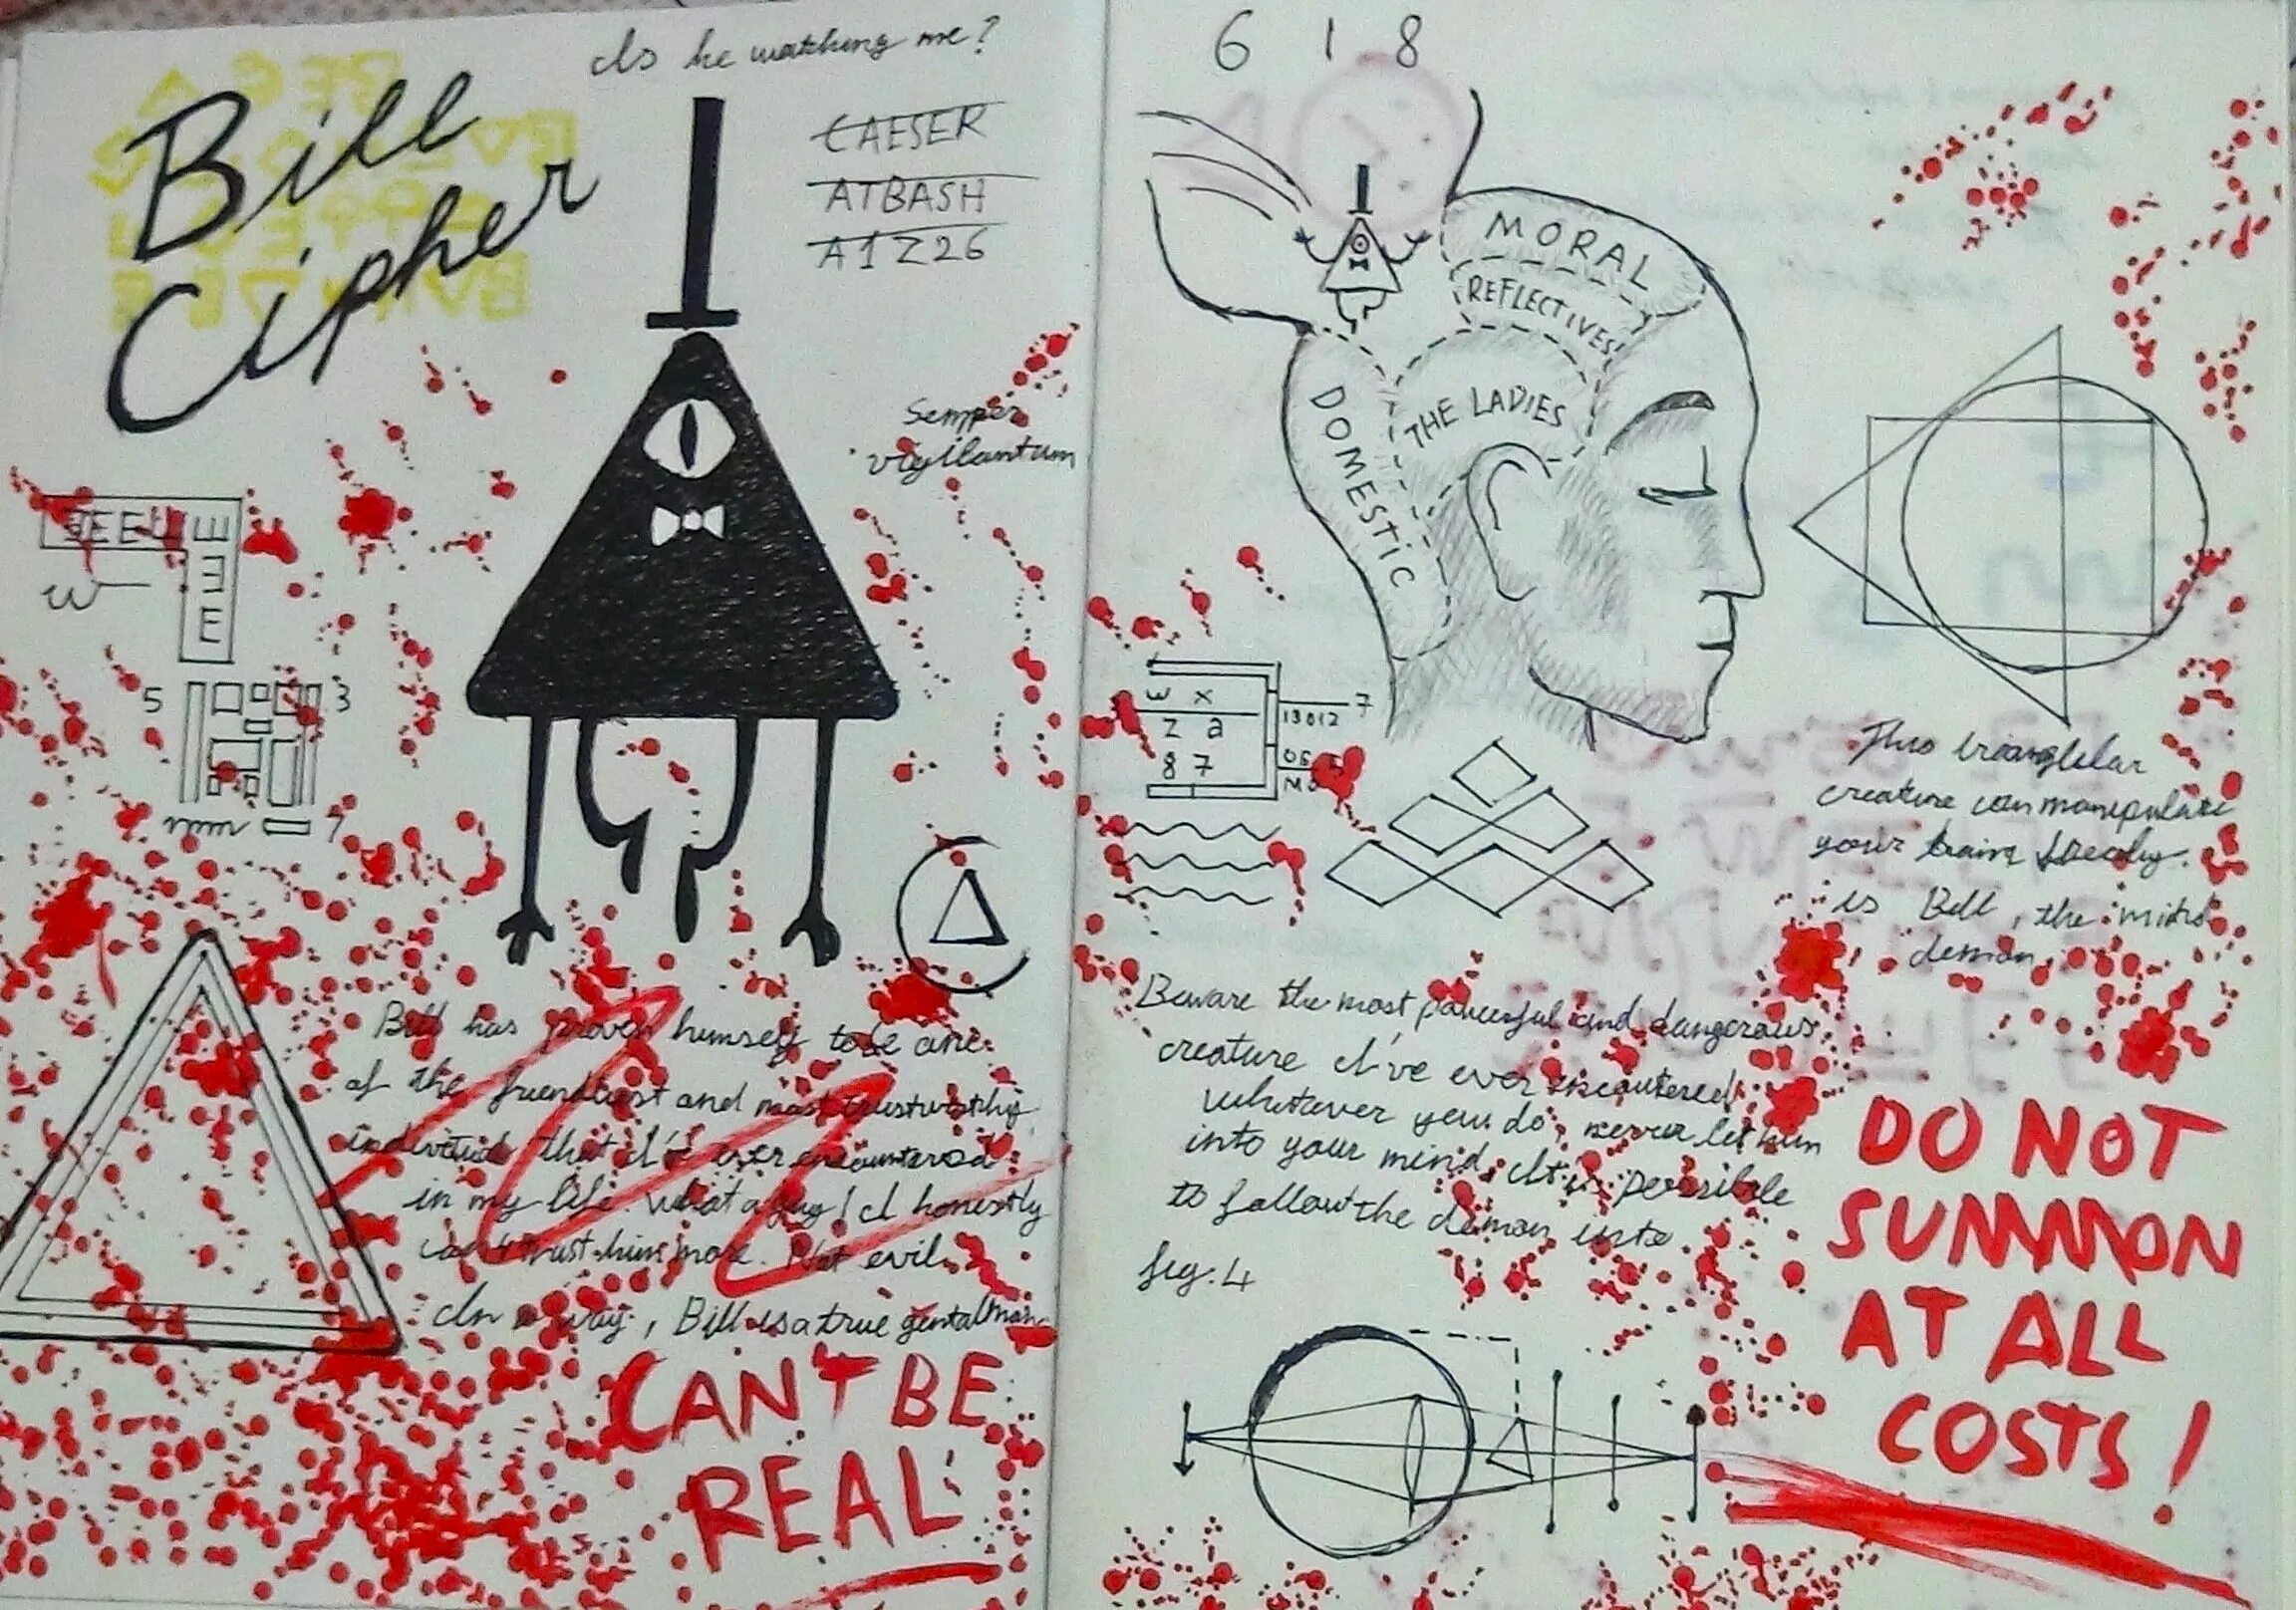 Is he watching me?
Bill
Cipher
CAESER
ATBASH
A1Z26
Semper
vigilantum
5 3
rpm 7
Bill has proven humself to be one
of the friendliest and most trustworthy
individual that I've ever encountered
in my life. What a guy! I honestly
can't trust him more. Not evil
In a way, Bill is a true gentalman
CAN'T BE
REAL
6 1 8
MORAL
REFLECTIVES
THE LADIES
DOMESTiC
w x 7
z a 13012
8 7
This trianglular
creature can manipulate
your brain freely.
is Bill, the mind
demon.
Beware the most powerful and dangerous
creature I've ever encoutered
whatever you do, never let him
into your mind. It is possible
to follow the demon into
fig. 4
DO NOT
SUMMON
AT ALL
COSTS!